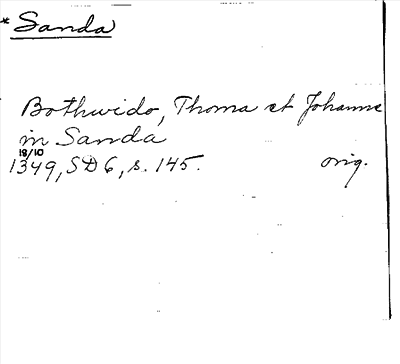 * Sanda
Bothvido, Thoma et Johanne
in Sanda
18/10
1349, SD 6, s. 145. orig.